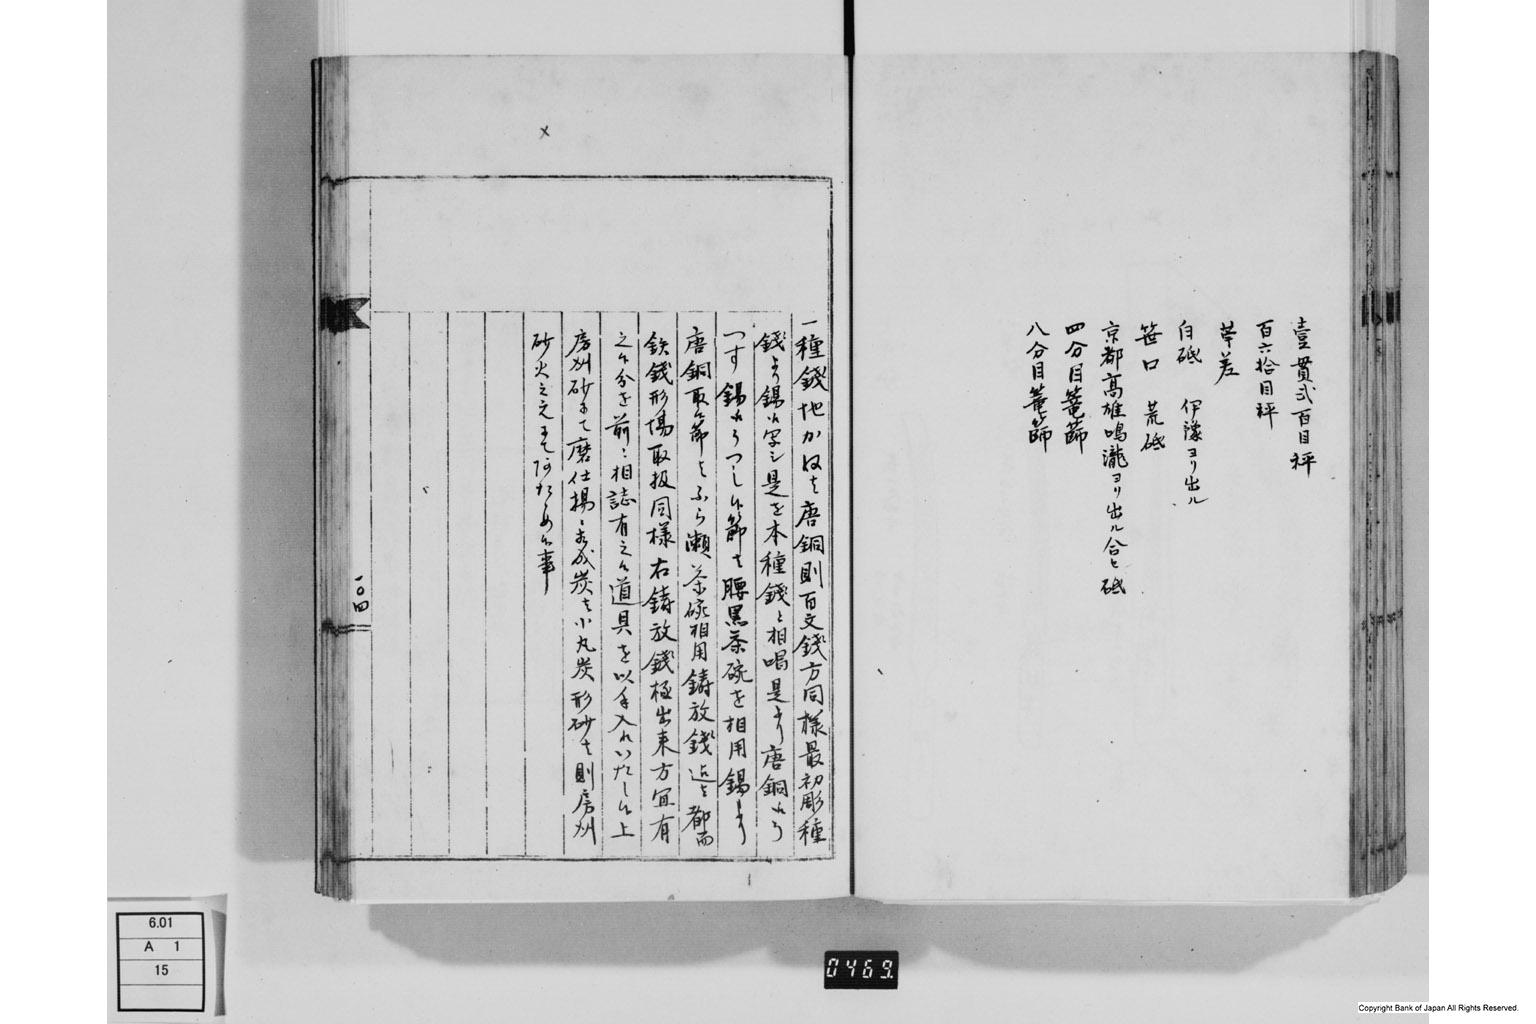 壹貫弐百目秤
百六拾目秤
莘差
白砥 伊豫ヨリ出ル
笹口 荒砥
京都高雄鳴瀧ヨリ出ル合ヒ砥
四分目篭篩
八分目篭篩
一種錢地かねは唐銅則百文錢方同様最初彫種
錢より錫に写シ是を本種錢と相唱是より唐銅にう
つす錫にうつし候節は腰黒茶碗を相用錫より
唐銅取候節はふら瀬茶碗相用鋳放錢迄も都而
鉄錢形場取扱同様右鋳放錢極出来方宜有
之候分を前ニ相誌有之候道具を以手入れいたし候上
房州砂にて磨仕揚ニ相成炭は小丸炭形砂は則房州
砂火之元にてあたため候事
一〇四
6.01
A 1
15
0469
Copyright Bank of Japan All Rights Reserved.